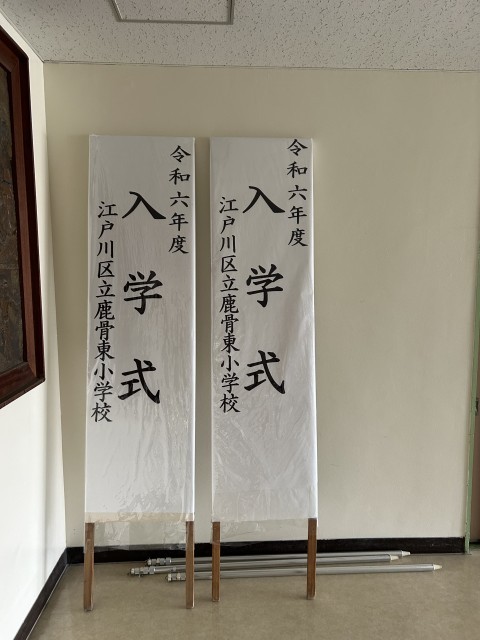 令和六年度
入学式
江戸川区立鹿骨東小学校
令和六年度
入学式
江戸川区立鹿骨東小学校